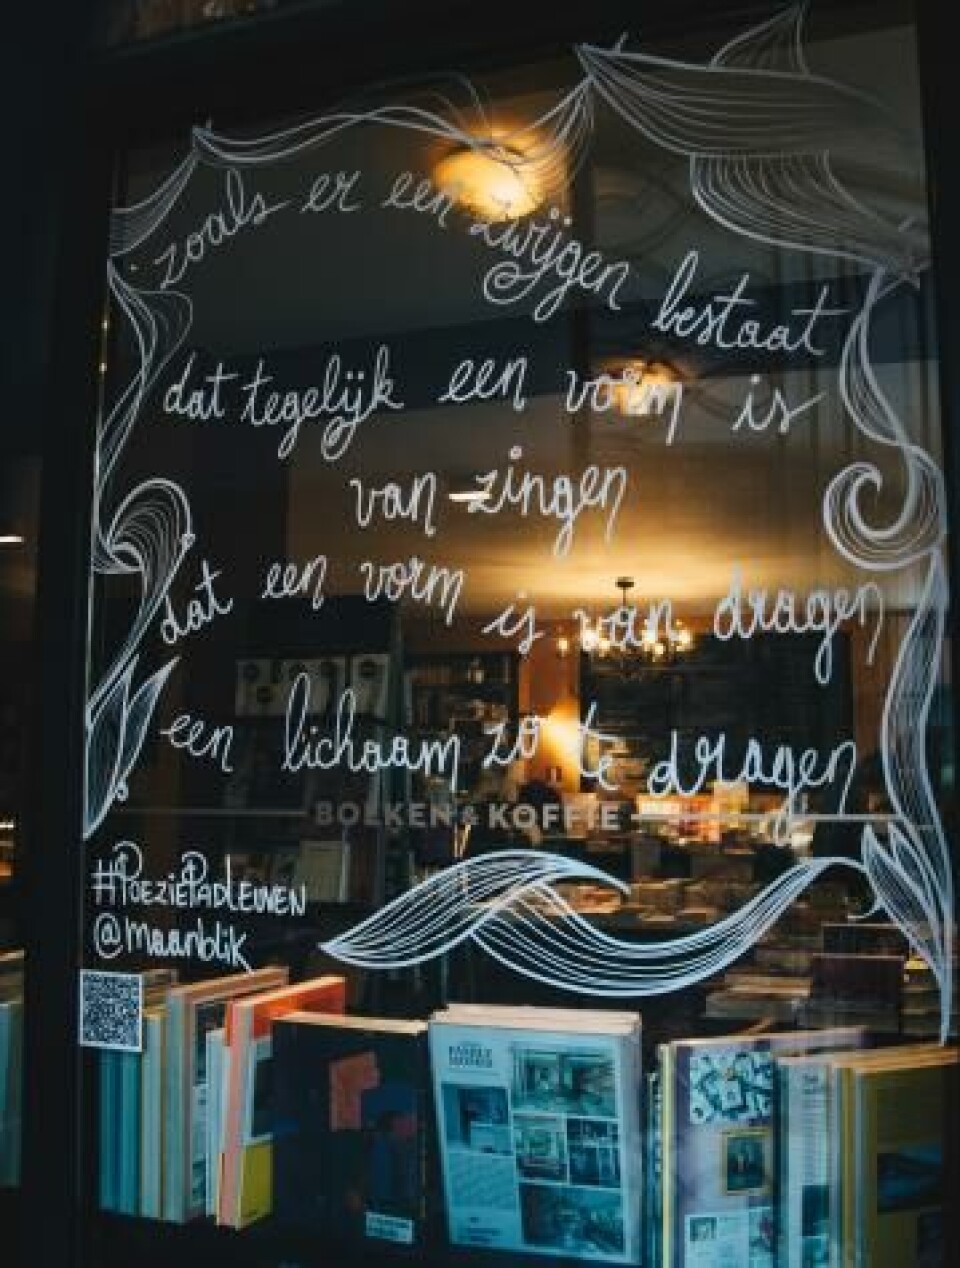 zoals er een zwijgen bestaat
dat tegelijk een vorm is
van zingen
dat een vorm is van dragen
een lichaam zo te dragen
BOEKEN & KOFFIE
#POËZIEPADLEUVEN
@maanblik